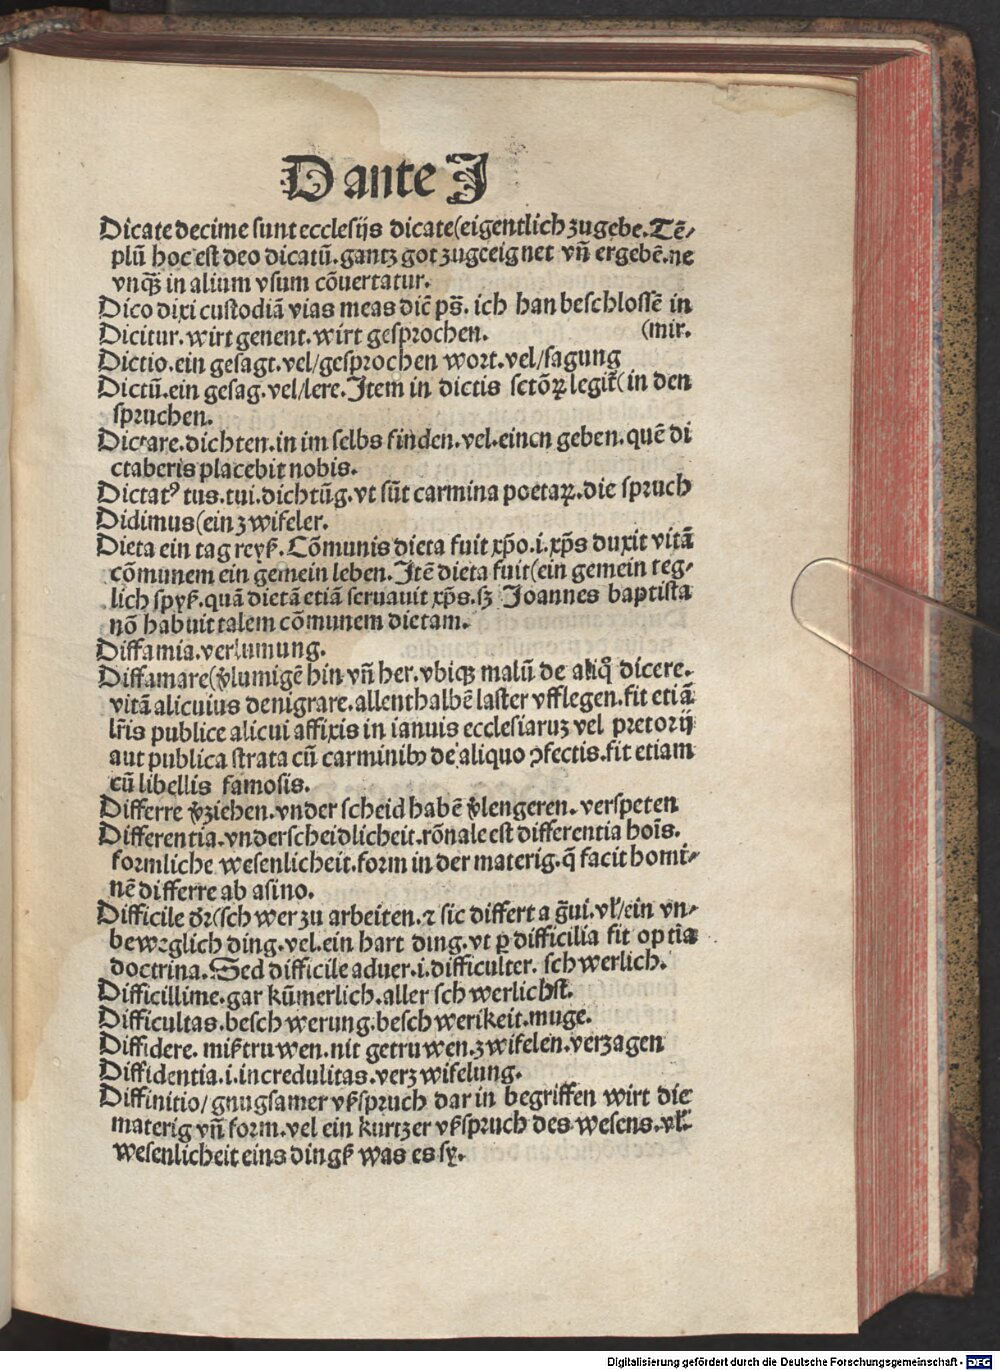 Dante J
Dicate decime sunt ecclesijs dicate(eigentlich zugebe. Tē⸗
plū hoc est deo dicatū. gantz got zugeeignet vñ ergebē. ne
vnqȝ in alium vsum cōuertatur.
Dico dixi custodiā vias meas dic̄ ps̄. ich han beschlossē in
Dicitur. wirt genent. wirt gesprochen. (mir.
Dictio. ein gesagt. vel/gesprochen wort. vel/sagung
Dictū. ein gesag. vel/lere. Item in dictis sctōꝝ legit̄(in den
spruchen.
Dictare. dichten. in im selbs finden. vel. einen geben. quē di
ctaberis placebit nobis.
Dictatꝰ tus. tui. dichtūg. vt sūt carmina poetaꝝ. die spruch
Didimus(ein zwifeler.
Dieta ein tag reyß. Cōmunis dieta fuit xp̄o. i. xp̄s duxit vitā
cōmunem ein gemein leben. Itē dieta fuit(ein gemein teg⸗
lich spyß. quā dietā etiā seruauit xp̄s. sȝ Joannes baptista
nō habuit talem cōmunem dietam.
Diffamia. verlumung.
Diffamare(v̄lumigē hin vñ her. vbiqȝ malū de aliq̊ dicere.
vitā alicuius denigrare. allenthalbē laster vfflegen. fit etiā
lr̄is publice alicui affixis in ianuis ecclesiaruȝ vel pretorij
aut publica strata cū carminibꝰ de aliquo ꝯfectis. fit etiam
cū libellis famosis.
Differre v̄ziehen. vnder scheid habē v̄lengeren. verspeten
Differentia. vnderscheidlicheit. rōnale est differentia hoīs.
formliche wesenlicheit. form in der materig. q̄ facit homi⸗
nē differre ab asino.
Difficile dr̄(schwer zu arbeiten. ⁊ sic differt a ḡui. vl̄/ein vn⸗
beweglich ding. vel. ein hart ding. vt ꝑ difficilia fit optīa
doctrina. Sed difficile aduer. i. difficulter. schwerlich.
Difficillime. gar kümerlich. aller schwerlichst.
Difficultas. beschwerung. beschwerikeit. muge.
Diffidere. mißtruwen. nit getruwen. zwifelen. verzagen
Diffidentia. i. incredulitas. verzwifelung.
Diffinitio/ gnugsamer vßspruch dar in begriffen wirt die
materig vñ form. vel ein kurtzer vßspruch des wesens. vl̄.
wesenlicheit eins dingß was es sy.
Digitalisierung gefördert durch die Deutsche Forschungsgemeinschaft - DFG